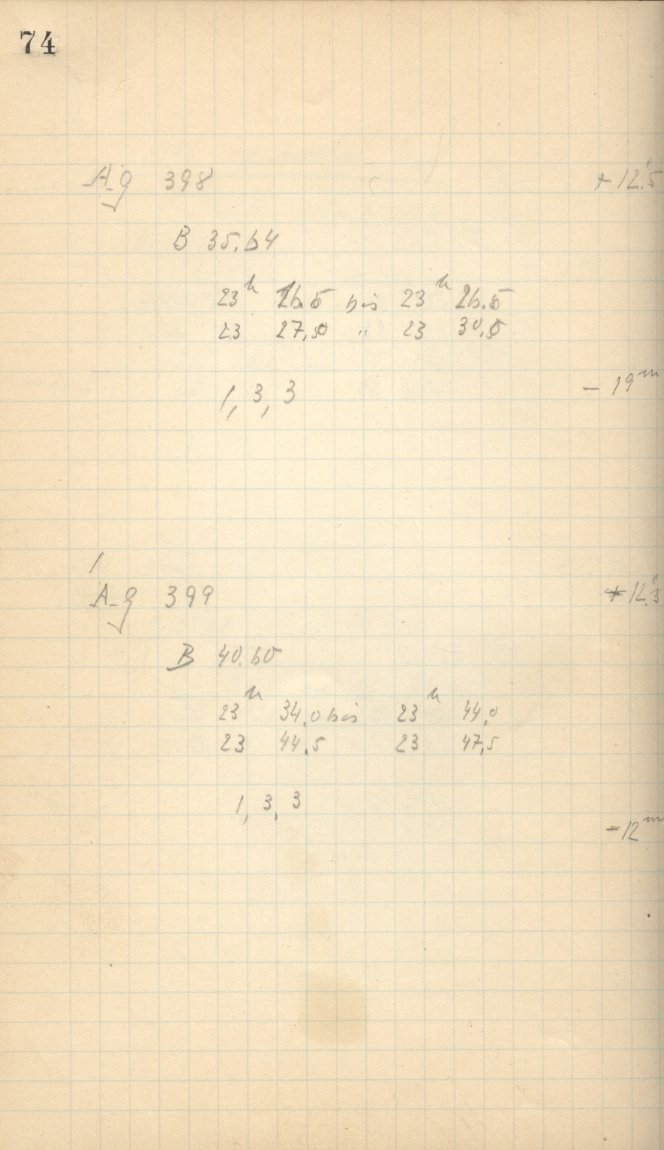 74
Ag 398 +12.5
B 35.64
23h 16.5 bis 23h 26.5
23 27,50 " 23 30,5
1, 3, 3 - 19m
Ag 399 +12.3
B 40.60
23h 34,0 bis 23h 44,0
23 44,5 23 47,5
1, 3, 3
-12m